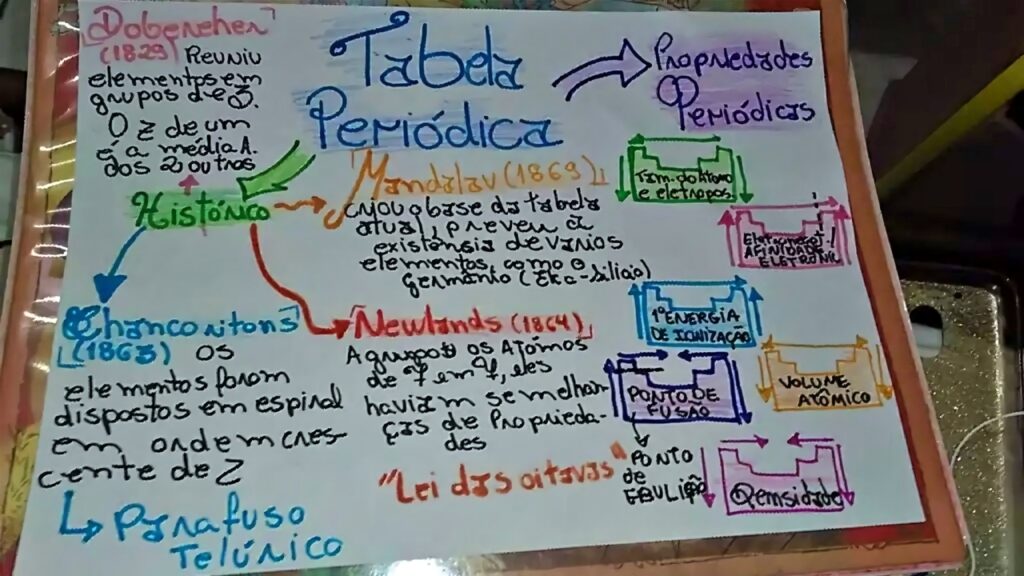 Tabela
Periódica
Propriedades
Periódicas
Dobereiher
(1829) Reuniu
elementos em
grupos de 3.
O Z de um
é a média A.
dos 2 outros
Histórico
Mandalav (1869)
criou a base da tabela
atual, preveu à
existência de varios
elementos, como o
germânio (Eka-silicio)
Chancoritons
(1863) os
elementos foram
dispostos em espiral
em ordem cres-
cente de Z
Parafuso
Telúrico
Newlands (1864)
Agrupos os Atómos
de 7 em 7, eles
haviam semelhan
ças de Proprieda-
des
"Lei das oitavas"
Tam. do Átomo
e eletropos.
AFINIDADE
1ª ENERGIA
DE IONIZAÇÃO
PONTO DE
FUSÃO
VOLUME
ATÔMICO
PONTO
de
EBULIÇÃO
Demsidade